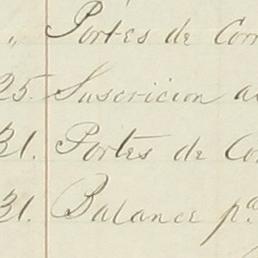 „ Portes de Cor
25. Suscricion a
31. Portes de Co
31. Balance pa.